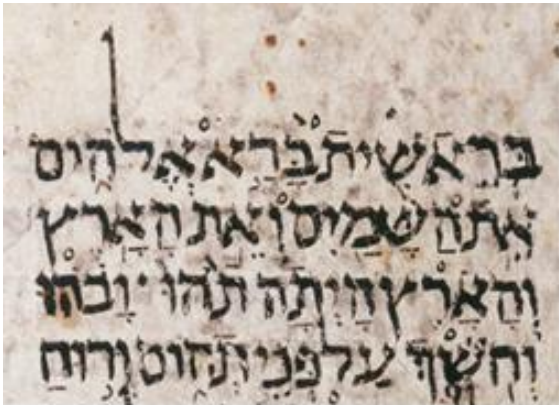 בראשית ברא אלהים
את השמים ואת הארץ
והארץ היתה תהו ובהו
וחשך על פני תהום ורוח